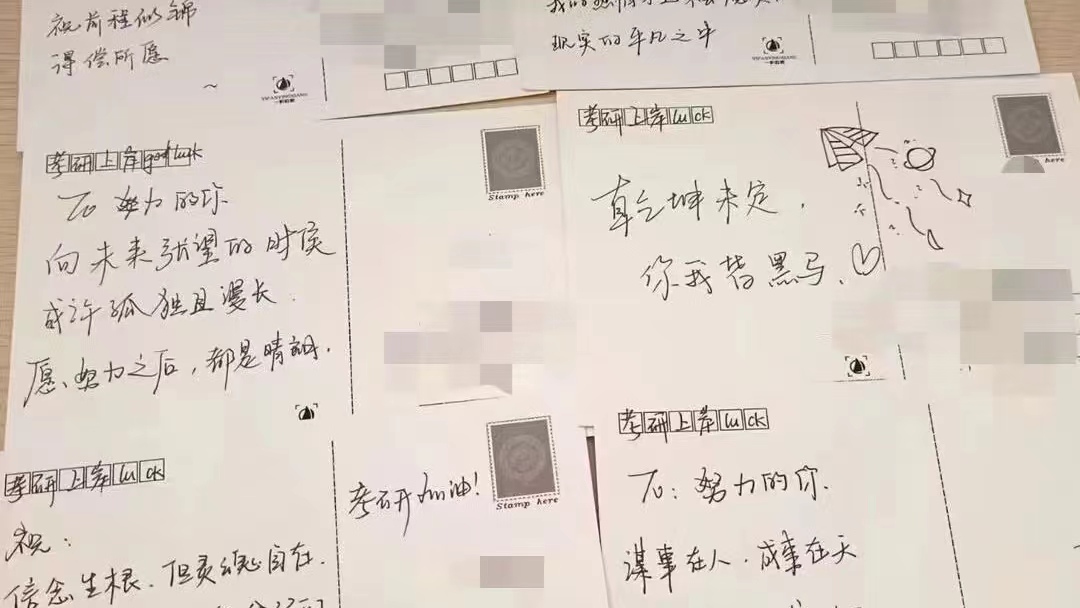 祝前程似锦
得偿所愿
~
YIFANYINGXIANG
现实的平凡之中
考研上岸good luck
Stamp here
To 努力的你
向未来张望的时侯
或许孤独且漫长.
愿、努力之后,都是晴朗.
考研上岸luck
here
乾坤未定,
你我皆黑马.
考研上岸luck
考研加油!
Stamp here
祝:
信念生根、但灵魂自在.
考研上岸luck
To: 努力的你.
谋事在人.成事在天